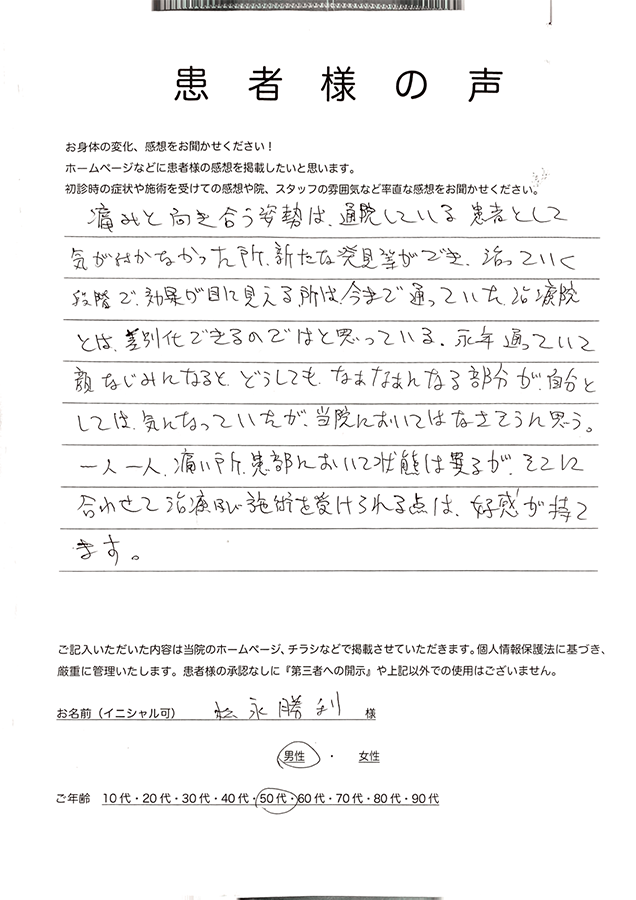 患者様の声
お身体の変化、感想をお聞かせください!
ホームページなどに患者様の感想を掲載したいと思います。
初診時の症状や施術を受けての感想や院、スタッフの雰囲気など率直な感想をお聞かせください。
痛みと向き合う姿勢は、通院している患者として
気が付かなかった所、新たな発見等ができ、治っていく
段階で、効果が目に見える所は今まで通っていた、治療院
とは、差別化できるのではと思っている。永年通っていて
顔なじみになると、どうしても、なあなあになる部分が、自分と
しては、気になっていたが、当院においてはなさそうに思う。
一人一人、痛い所、患部において状態は異るが、そこに
合わせて治療及び施術を受けられる点は、好感が持て
ます。
ご記入いただいた内容は当院のホームページ、チラシなどで掲載させていただきます。個人情報保護法に基づき、
厳重に管理いたします。患者様の承認なしに『第三者への開示』や上記以外での使用はございません。
お名前(イニシャル可) 松永勝利 様
男性 ・ 女性
ご年齢 10代・20代・30代・40代・50代・60代・70代・80代・90代